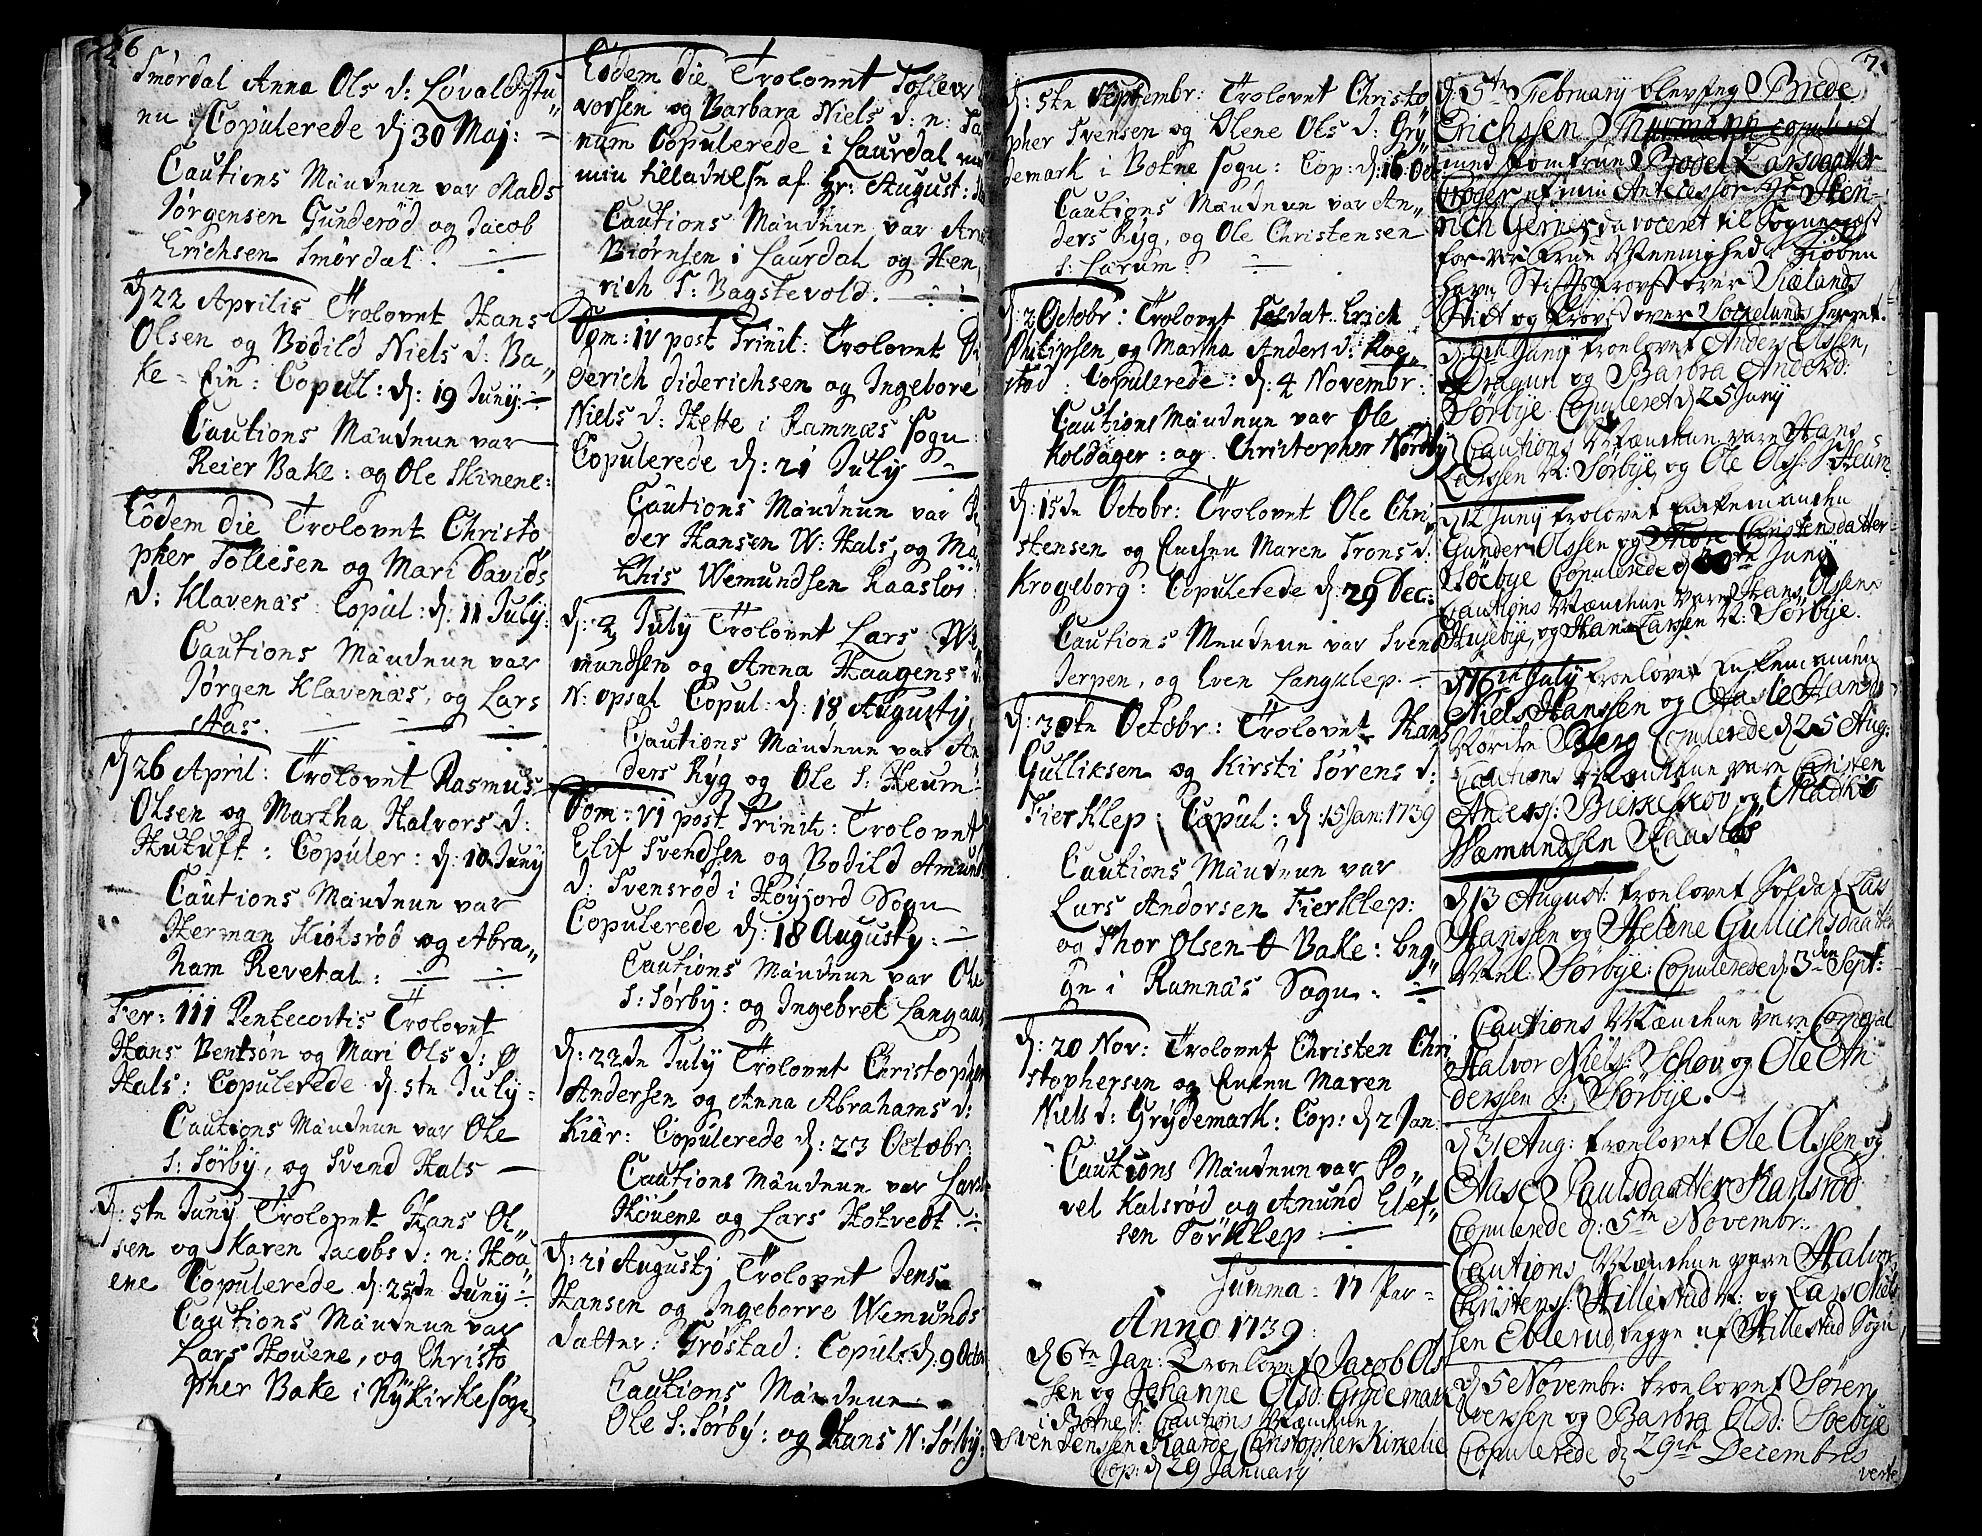 6
Smørdal Anna Ols d: Løvaldstu„
nu: Copulerede d: 30 Maj: –
Cautions Mændene var Mads
Jørgensen Gunderød og Jacob
Erichsen Smørdal.
d 22 Aprilis Trolovet Hans
Olsen og Bodild Niels d: Ba„
ke = Ein: Copul: d: 19 Juny: –
Cautions Mændene var
Reier Bake: og Ole Skinene:
Eodem die Trolovet Christo
pher Tollesen og Mari Davids
d: Klavenæs: Copul: d: 11 July:
Cautions Mændene var
Jørgen Klavenæs, og Lars
Aas.
d 26 April: Trolovet Rasmus
Olsen og Martha Halvors d:
Hukuft: Copuler: d: 10 Juny
Cautions Mændene var
Herman Kiølsrød og Abra„
ham Revetal:
Fer: III Pentecostis Trolovet
Hans Bentsøn og Mari Ols d: Ø
Hals: Copulerede d. 5te July:
Cautions Mændene var Ole
S: Sørby, og Svend Hals –
d: 5te Juny Trolovet Hans Ol„
sen og Karen Jacobs d: n: Hou„
ene Copulerede d: 25de Juny
Cautions Mændene var
Lars Houene, og Christo
pher Bake i Nykirke sogn
Eodem die Trolovet Tollev
vorsen og Barbara Niels d: n:
num Copulerede i Laurdal med
min tilladelse af Hr: August:
Cautions Mændene var Arn
Biørnsen i Laurdal og Hen
rich S: Bagstevold.
Dom: IV post Trinit: Trolovet Di
derich Diderichsen og Ingebore
Niels d: Hette i Ramnæs sogn
Copulerede d: 21 July –
Cautions Mændene var
der Hansen W: Hals, og Ma„
this Wemundsen Raasløs:
d: 2 July Trolovet Lars We
mundsen og Anna Haagens d:
N: opsal Copul: d: 18 Augusty,
Cautions Mændene var An
ders Ryg og Ole S: Heum
Dom: VI post Trinit: Trolovet
Elif Svendsen og Bodild Amund
d: Svensrød i Høyjord Sogn
Copulerede d: 18 Augusty: –
Cautions Mændene var Ole
S: Sørby: og Ingebret Langaas
d: 22de July Trolovet Christopher
Andersen og Anna Abrahams d:
Kiær: Copulerede d: 23 Octobr:
Cautions Mændene var Lars
Houene og Lars Hotvedt
d: 21 Augusty Trolovet Jens
Hansen og Ingeborre Wemunds
datter: Grøstad: Copul: d: 9 Octob
Cautions Mændene
Ole S: Sørby: og Hans N: Sørby:
d: 5te Septembr: Trolovet Christo
pher Svensen og Olene Ols d: Gry„
demark i Botne sogn: Cop: d: 16 Oct
Cautions Mændene var An„
ders Ryg, og Ole Christensen
S: Larum
d: 2 Octobr: Trolovet Soldat Erich
Philipsen og Martha Anders d: Rog„
stød: Copulerede: d: 4 Novembr:
Cautions Mændene var Ole
Koldager: og Christopher Nordby
d: 15de Octobr: Trolovet Ole Chri„
stensen og Enchen Maren Trons d:
Krogeborg: Copulerede d: 29 Dec:
Cautions Mændene var Svend
Jerpen, og Even Langklep. –
d: 30te Octobr: Trolovet Hans
Gulliksen og Kirsti Sørens d:
Fierklep: Copul: d: 15 Jan: 1739
Cautions Mændene var
Lars Andersen Fierklep:
og Thor Olsen Ø Bake: beg„
ge i Ramnæs Sogn:
d: 20 Nov: Trolovet Christen Chri
stophersen og Enchen Maren
Niels d: Grydemark: Cop: d 2 Jan:
Cautions Mændene var Po„
vel Kalsrød og Amund Elef„
sen Førklep:
Summa: 17 Par
Anno 1739:
d 6te Jan: Troelovet Jacob Ols
sen og Johanne Olsd: Grydemark
i Botne S: Cautions Mændene
Sven Jenssen Kaarøe, Christopher Kirkelie
Cop: d 29 January
7.
d 5te February blev jeg Brede
Erichssen Thurmann copuleret
med Jomfrue Bodel Larsdaatter
Røger af min Antecessor Hr Hen„
rich Gerner da voceret til Sognepræst
for Vor Frue Meenighed i Kiøben
havn Stifts Provst over Siælands
Stict og Provst over Sockelunds Herret.
d 9de Juny troelovet Anders Olssen,
Dragun og Barbra Andersd:
Sørbye Copuleret d 25 Juny
Cautions Mændene vare Hans
Larssen N: Sørbye og Ole Olss: S Heum
d 12 Juny troelovet Enkemanden
Gunder Olssen og Mari Christensdatter
Søebye Copulerede d 30te Juny
Cautions Mændene vare Hans Olssen
Husebye, og Hans Larssen N: Sørbye.
d 16de July troelovet Enkemanden
Niels Hanssen og Aasle Hansd:
Nordre Berg Copulerede d 25 Aug:
Cautions Mændene vare Christen
Anderss: Birkeskov og Mathis
Wæmundssen Raasløs
d 13 August: troelovet Soldat Lars
Hanssen og Helene Gullichsdaatter
Mel: Sørbye: Copulerede d: 3den Sept:
Cautions Mændene vare Corporal
Halvor Nielss: Schov og Ole An
derssen S: Sørbye.
d 31 Aug: troelovet Ole Olssen og
Aase Paulsdaatter Hansrød
Copulerede d: 5te Novembr:
Cautions Mændene vare Halvor
Christenss: Hillestad N: og Lars Niels
sen Eblerud begge af Hillestad Sogn
d 5 Novembr: troelovet Søren
Iverssen og Barbra Olsd: Soebye
Copulerede d 29de Decembris
verte